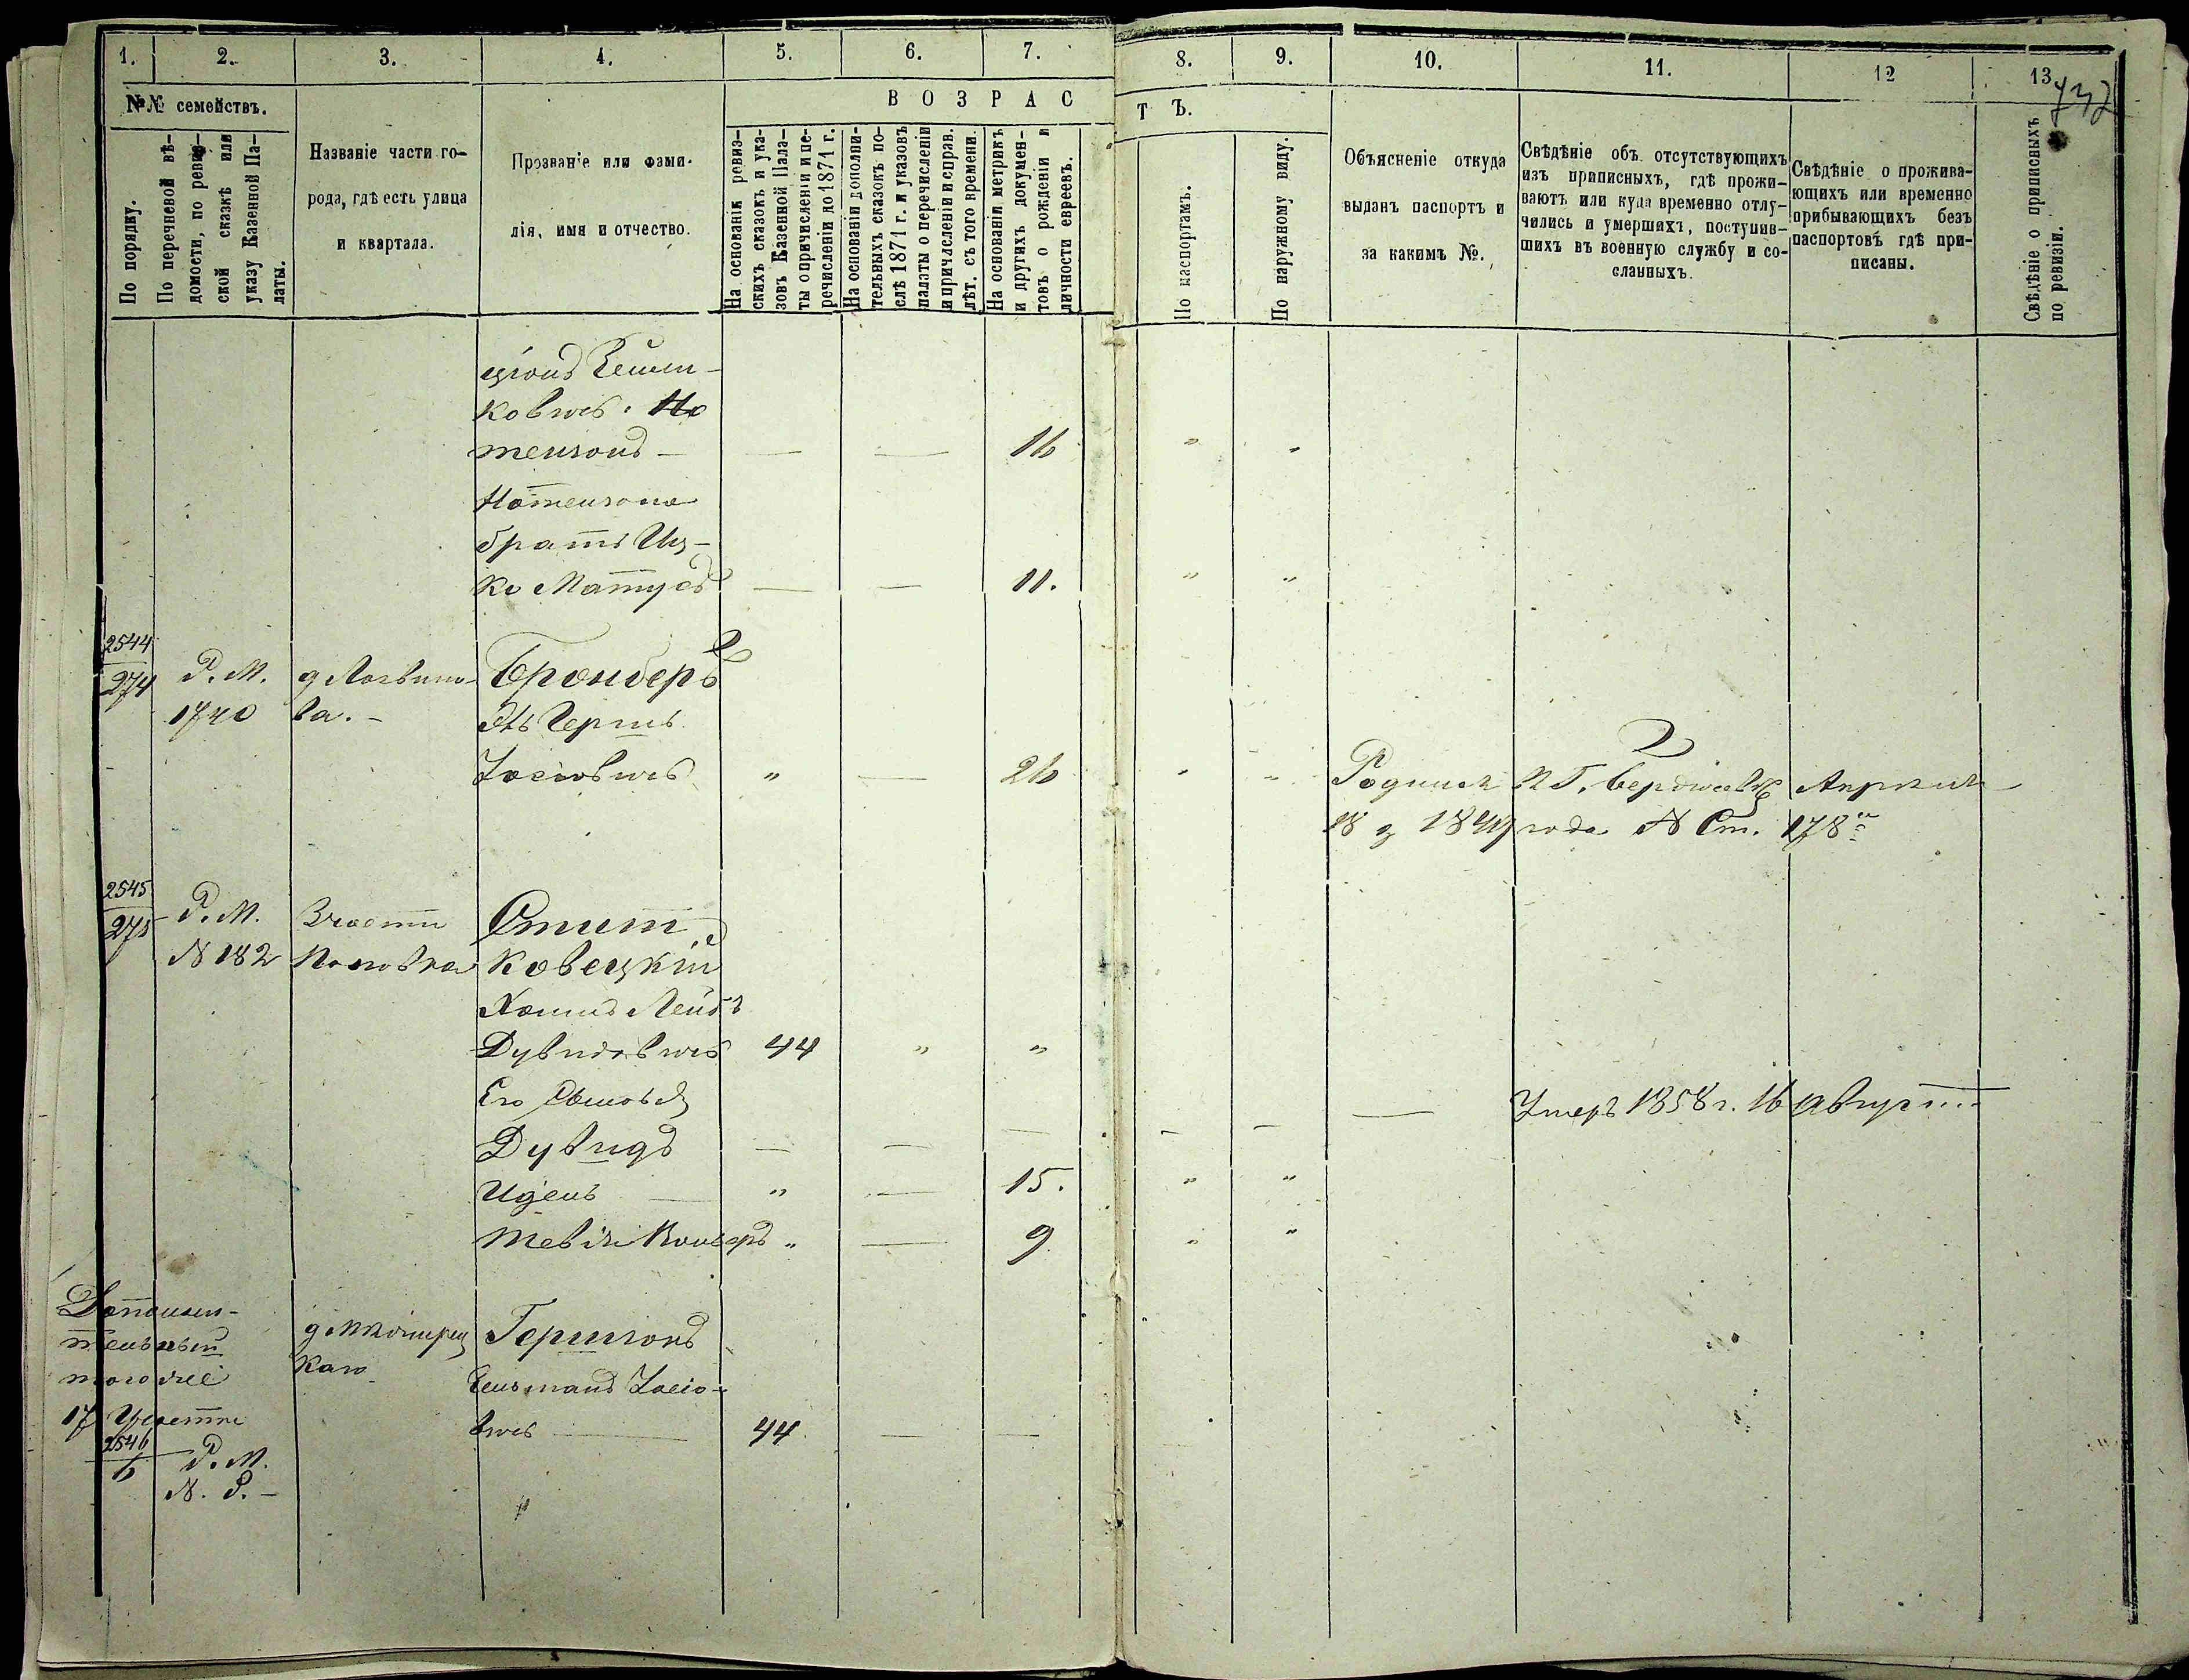 1. 2. 3. 4. 5. 6. 7. 8. 9. 10. 11. 12 13
732
№№ семействъ.
В О З Р А С Т Ъ.
По порядку.
По перечневой вѣ-
домости, по ревиз-
ской сказкѣ или
указу Казенной Па-
латы.
Названіе части го-
рода, гдѣ есть улица
и квартала.
Прозваніе или фами-
лія, имя и отчество.
На основаніи ревиз-
скихъ сказокъ и ука-
зовъ Казенной Пала-
ты о причисленіи и пе-
речисленіи до 1871 г.
На основаніи дополни-
тельныхъ сказокъ по-
слѣ 1871 г. и указовъ
палаты о перечисленіи
и причисленіи и справ.
лѣт. съ того времени.
На основаніи метрикъ
и другихъ докумен-
товъ о рожденіи и
личности евреевъ.
По паспортамъ.
По наружному виду.
Объясненіе откуда
выданъ паспортъ и
за какимъ №.
Свѣдѣніе объ отсутствующихъ
изъ приписныхъ, гдѣ прожи-
ваютъ или куда временно отлу-
чились и умершихъ, поступив-
шихъ въ военную службу и со-
сланныхъ.
Свѣдѣніе о прожива-
ющихъ или временно
прибывающихъ безъ
паспортовъ гдѣ при-
писаны.
Свѣдѣніе о приписныхъ
по ревизіи.
ковичъ
тензонъ — — — 16 " "
Нотензона
братъ Иц-
ко Матусъ — — 11. " "
2544
274 Р. М. Бронберъ
1740 ва. — Гершъ
Іосіовичъ " — 26 " " Родился въ Г. Бердичевѣ Апрѣля
18 года № Ст. 178
2545
275 Р. М. 3 части Стит
№ 182 ковецкій
Хаимъ Лейбъ
Дувидовичъ 44 " "
Его сыновья
Дувидъ — — — — — — Умеръ 1858 г. 16 августа
Иделъ — " — 15. " "
Тевія " — 9 " "
Дополни-
тельный Гершзонъ
каго Іосіо-
17 Участка вичъ — 44 — —
2546
6 Р. М.
№